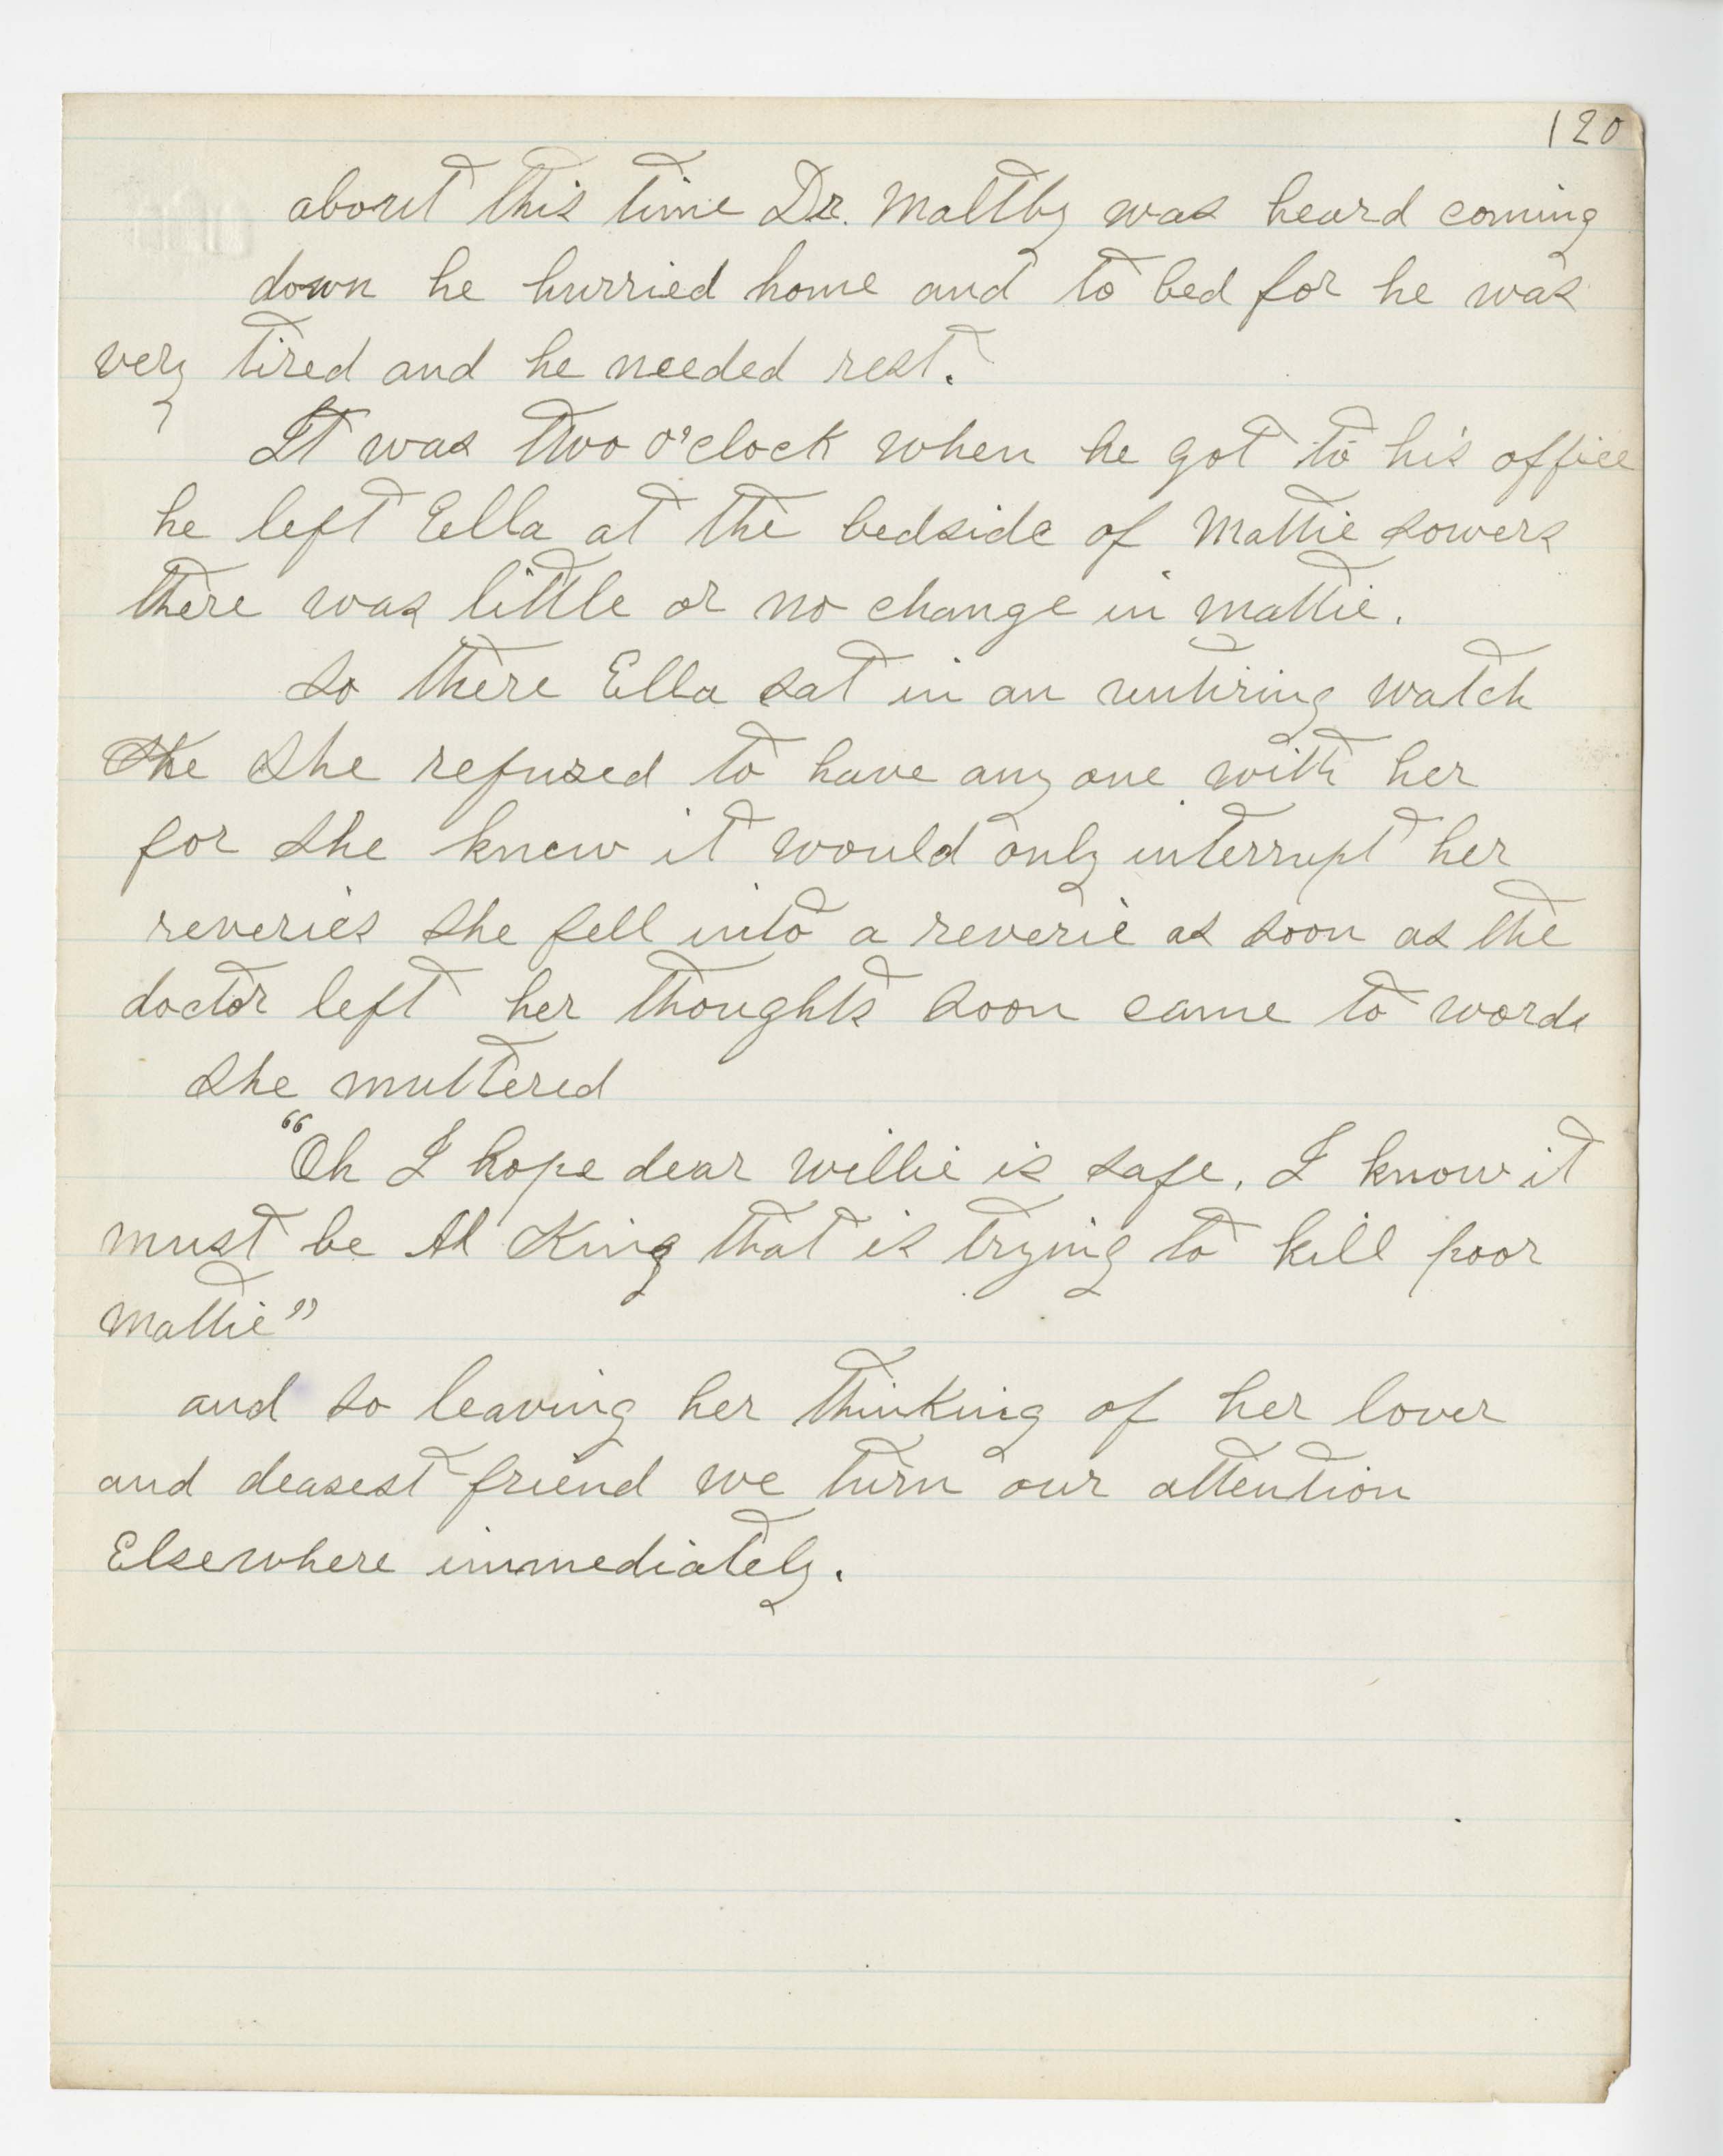 120
about this time Dr. Maltby was heard coming
down he hurried home and to bed for he was
very tired and he needed rest.
It was two o'clock when he got to his office
he left Ella at the bedside of Mattie Sowers
there was little or no change in Mattie.
So there Ella sat in an untiring watch
She she refused to have any one with her
for she knew it would only interrupt her
reveries she fell into a reverie as soon as the
doctor left her thoughts soon came to words
she muttered
"Oh I hope dear Willie is safe. I know it
must be Al King that is trying to kill poor
Mattie"
and so leaving her thinking of her lover
and deasest friend we turn our attention
Elsewhere immediately.